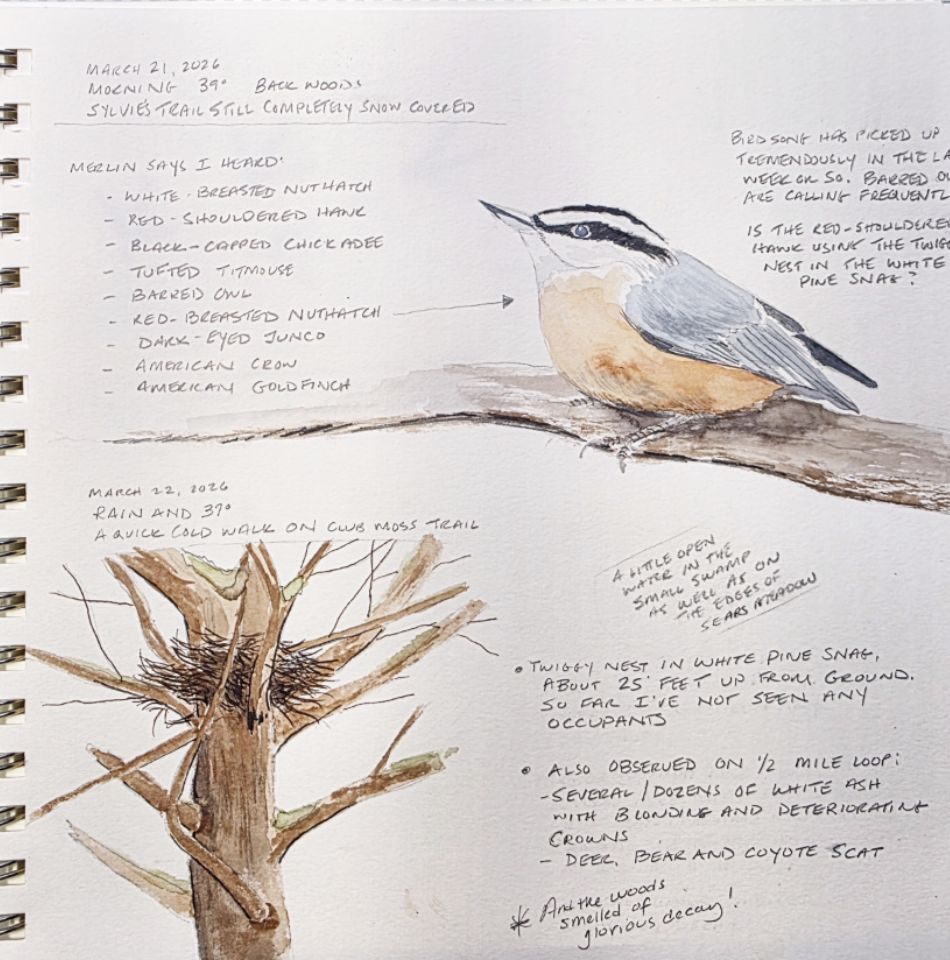 MARCH 21, 2026
MORNING 39° BACK WOODS
SYLVIE'S TRAIL STILL COMPLETELY SNOW COVERED
MERLIN SAYS I HEARD:
- WHITE-BREASTED NUTHATCH
- RED-SHOULDERED HAWK
- BLACK-CAPPED CHICKADEE
- TUFTED TITMOUSE
- BARRED OWL
- RED-BREASTED NUTHATCH
- DARK-EYED JUNCO
- AMERICAN CROW
- AMERICAN GOLDFINCH
BIRD SONG HAS PICKED UP
TREMENDOUSLY IN THE LA
WEEK OR SO. BARRED OW
ARE CALLING FREQUENTL
IS THE RED-SHOULDERED
HAWK USING THE TWIGG
NEST IN THE WHITE
PINE SNAG?
MARCH 22, 2026
RAIN AND 37°
A QUICK COLD WALK ON CLUB MOSS TRAIL
A LITTLE OPEN
WATER IN THE
SMALL SWAMP
AS WELL AS ON
THE EDGES OF
SEARS MEADOW
• TWIGGY NEST IN WHITE PINE SNAG,
ABOUT 25' FEET UP FROM GROUND.
SO FAR I'VE NOT SEEN ANY
OCCUPANTS
• ALSO OBSERVED ON 1/2 MILE LOOP:
- SEVERAL/DOZENS OF WHITE ASH
WITH BLONDING AND DETERIORATING
CROWNS
- DEER, BEAR AND COYOTE SCAT
* And the woods
smelled of
glorious decay!